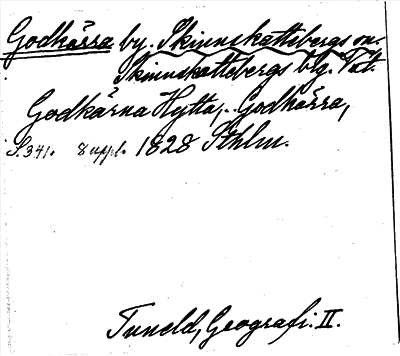 Godkärra by. Skinnskattebergs sn.
Skinnskattebergs blg. Vstm.
Godkärna Hytta,.. Godkärra,
S. 341. 8 uppl. 1828 Sthlm.
Tuneld, Geografi. II.